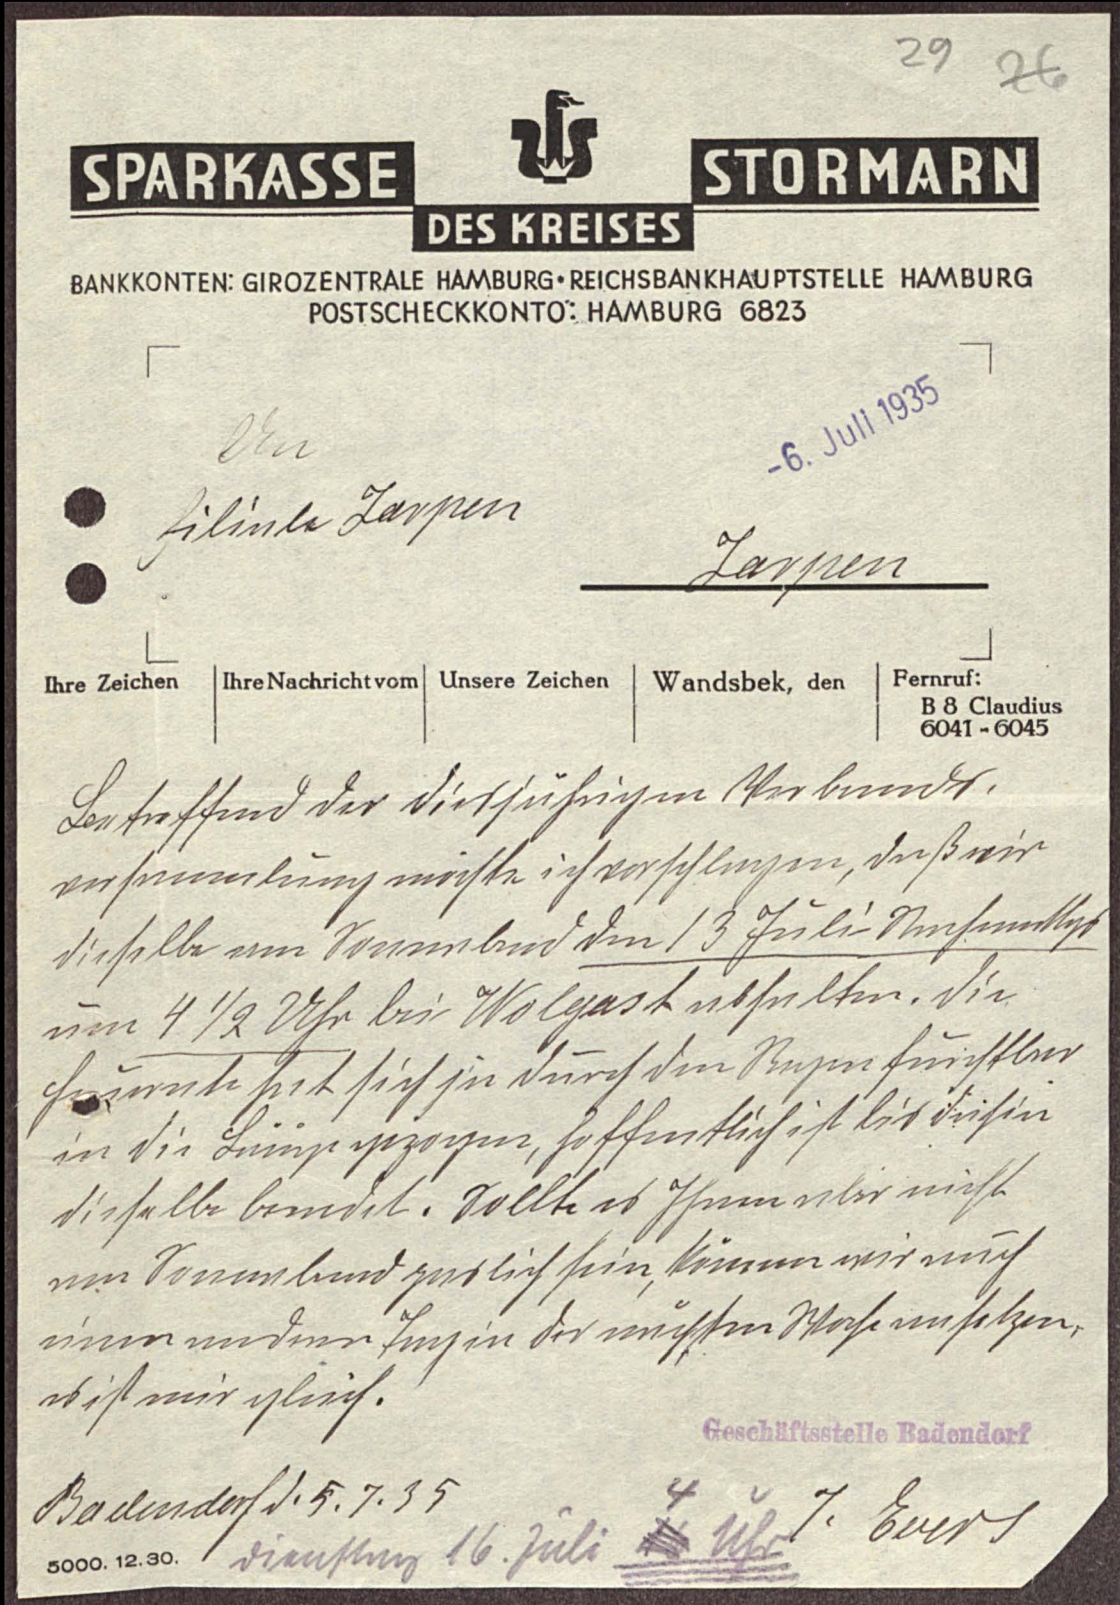 29 26
SPARKASSE STORMARN
DES KREISES
BANKKONTEN: GIROZENTRALE HAMBURG • REICHSBANKHAUPTSTELLE HAMBURG
POSTSCHECKKONTO: HAMBURG 6823
-6. Juli 1935
An
Filiale Zarpen
Zarpen
Ihre Zeichen
Ihre Nachricht vom
Unsere Zeichen
Wandsbek, den
Fernruf:
B 8 Claudius
6041 - 6045
Betreffend der diesjährigen Verbands-
versammlung möchte ich vorschlagen, daß wir
dieselbe am Sonnabend den 13 Juli Nachmittgs
um 4 1/2 Uhr bei Wolgast abhalten. Die
Heuernte hat sich ja durch den Regen furchtbar
in die Länge gezogen, hoffentlich ist bis dahin
dieselbe beendet. Sollte es Ihnen aber nicht
am Sonnabend paslich sein, können wir auch
einen anderen Tag in der nächsten Woche ansetzen,
es ist mir gleich.
Geschäftsstelle Badendorf
Badendorf d. 5. 7. 35
J. Evers
Dienstag 16. Juli 4 Uhr
5000. 12. 30.